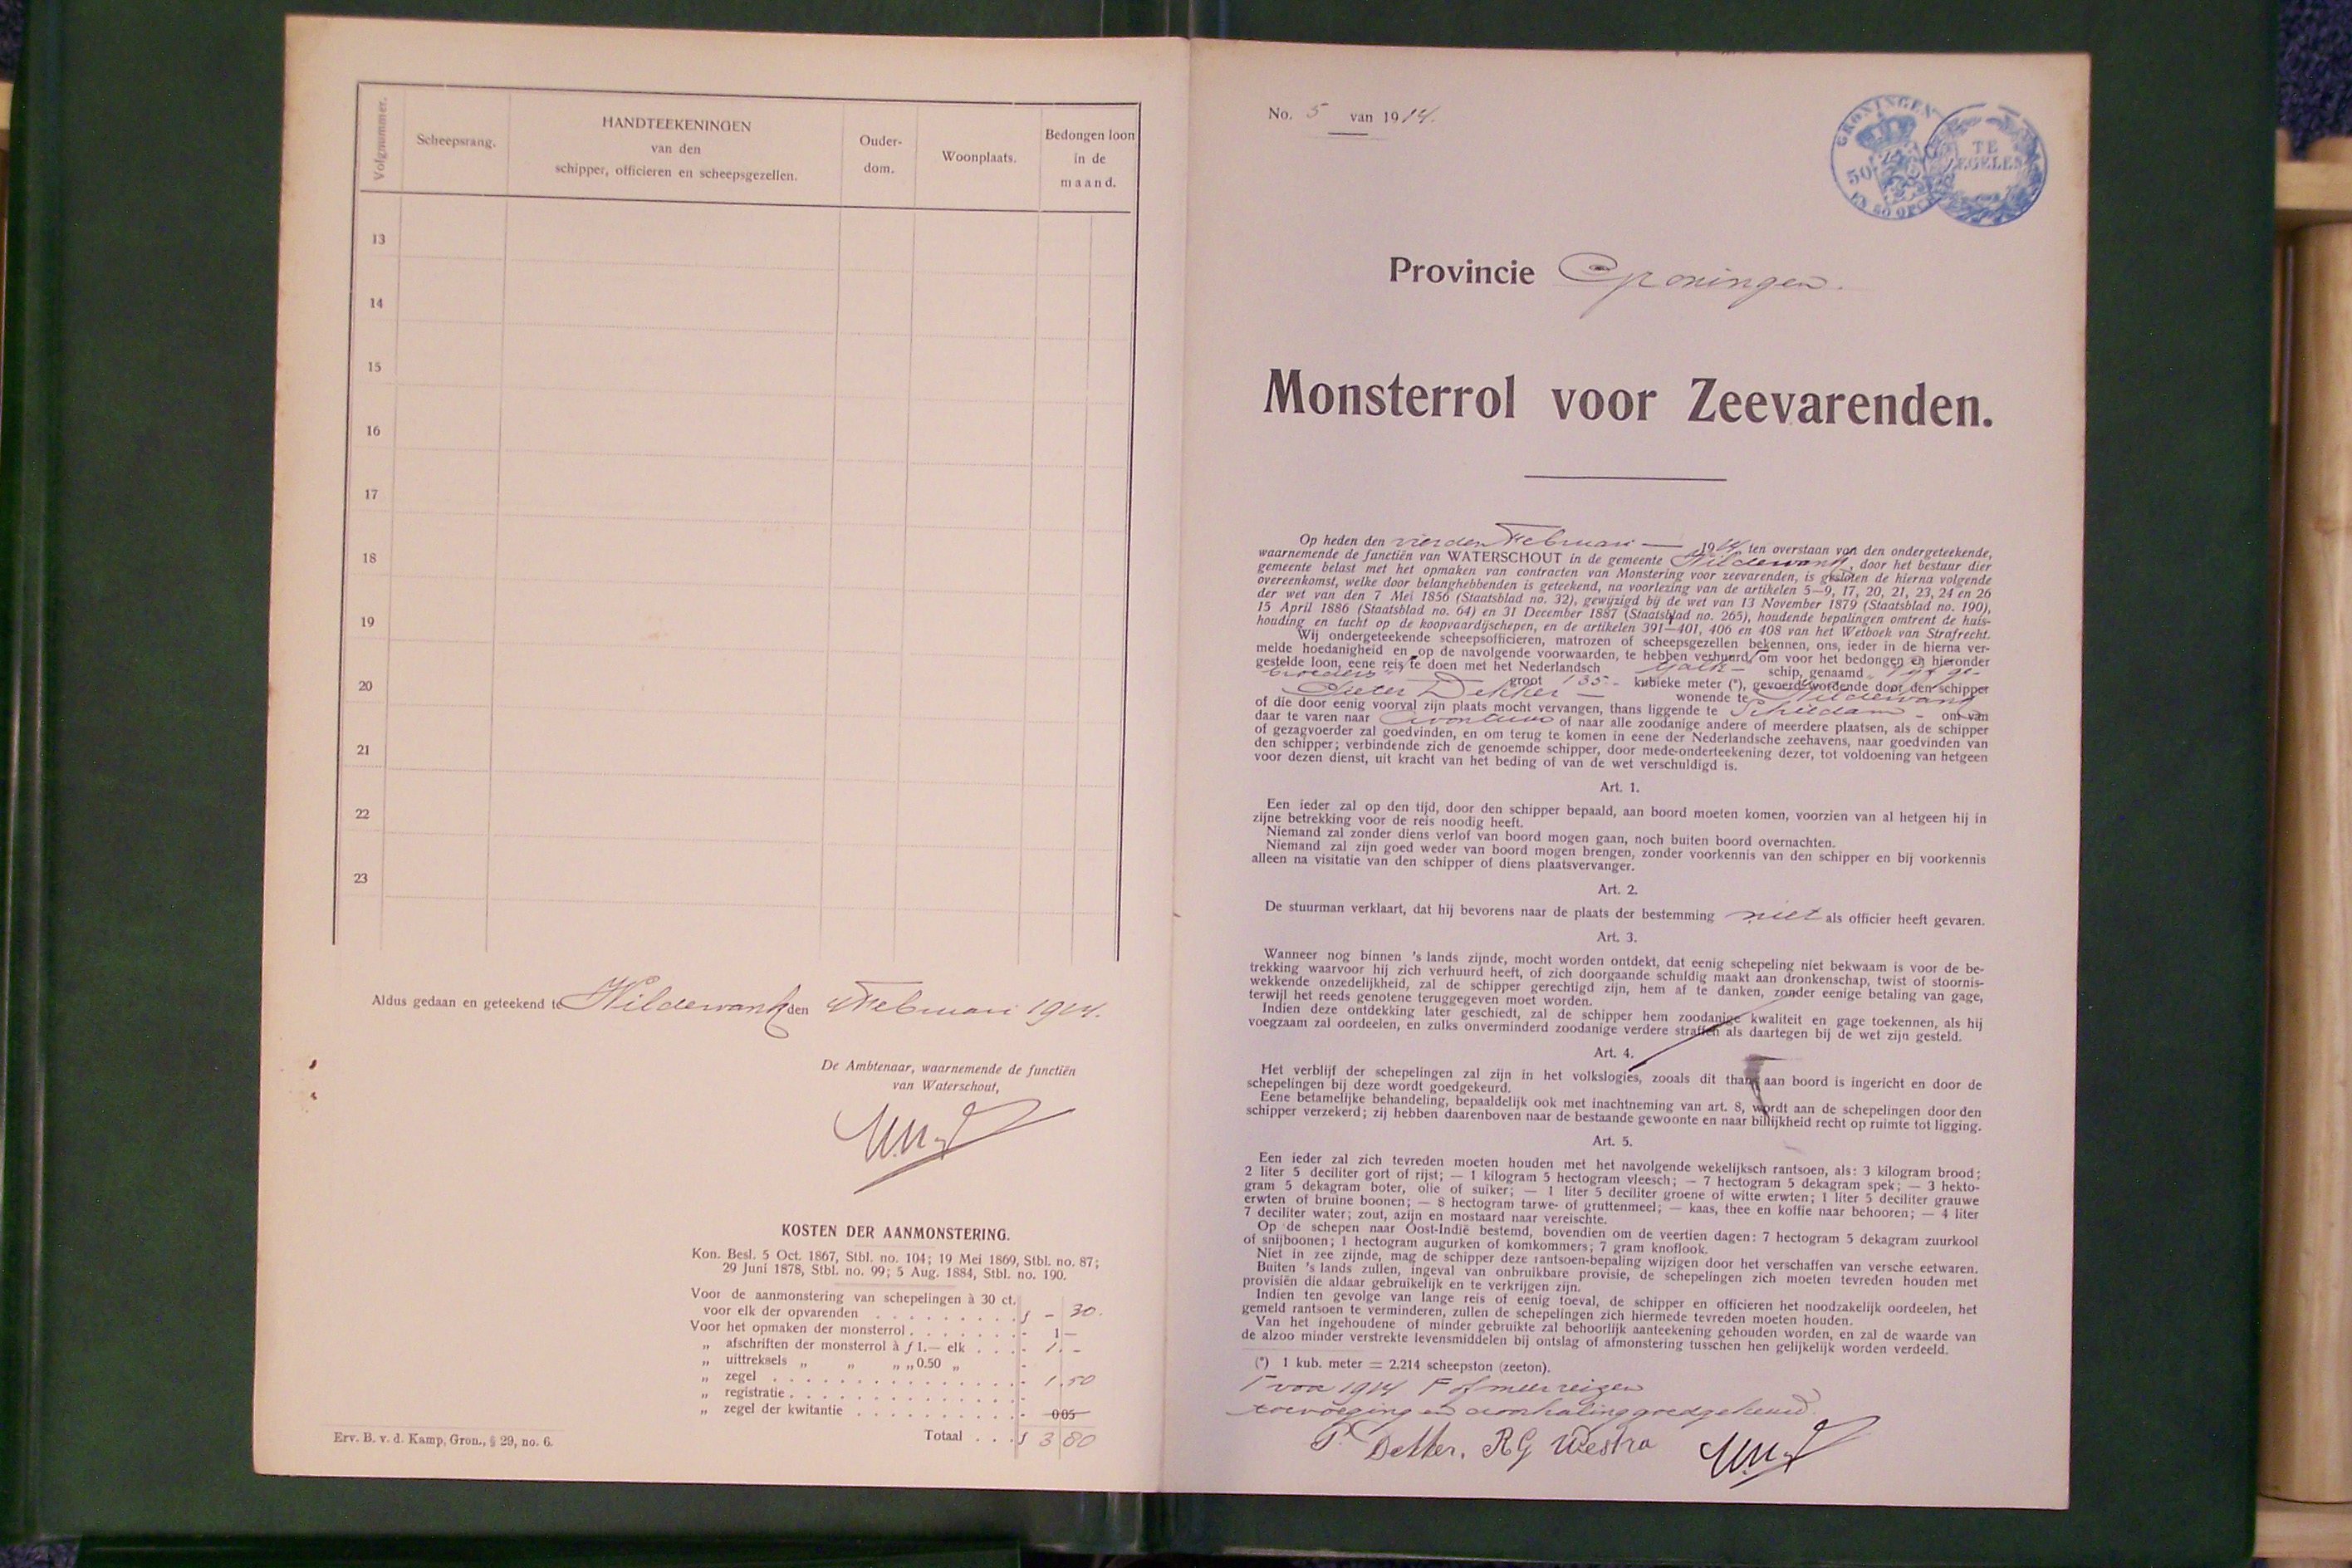 Volgnummer.
Scheepsrang.
HANDTEEKENINGEN
van den
schipper, officieren en scheepsgezellen.
Ouder-
dom.
Woonplaats.
Bedongen loon
in de
maand.
13
14
15
16
17
18
19
20
21
22
23
Aldus gedaan en geteekend te Wildervank den 4 Februari 1914.
De Ambtenaar, waarnemende de functiën
van Waterschout,
KOSTEN DER AANMONSTERING.
Kon. Besl. 5 Oct. 1867, Stbl. no. 104; 19 Mei 1869, Stbl. no. 87;
29 Juni 1878, Stbl. no. 99; 5 Aug. 1884, Stbl. no. 190.
Voor de aanmonstering van schepelingen à 30 ct.
voor elk der opvarenden . . . . . . . . . . f - 30.
Voor het opmaken der monsterrol . . . . . . . - 1 —
„ afschriften der monsterrol à f 1.— elk . . . - 1. -
„ uittreksels „ „ „ „ 0.50 „ -
„ zegel . . . . . . . . . . . . . . . - 1.50
„ registratie . . . . . . . . . . . . . -
„ zegel der kwitantie . . . . . . . . . . - 0 05
Totaal . . . f 3 80
Erv. B. v. d. Kamp, Gron., § 29, no. 6.
No. 5 van 1914.
GRONINGEN
50
EN 50 OPC
TE
ZEGELEN
Provincie Groningen.
Monsterrol voor Zeevarenden.
Op heden den vierden Februari — 1914 ten overstaan van den ondergeteekende,
waarnemende de functiën van WATERSCHOUT in de gemeente Wildervank, door het bestuur dier
gemeente belast met het opmaken van contracten van Monstering voor zeevarenden, is gesloten de hierna volgende
overeenkomst, welke door belanghebbenden is geteekend, na voorlezing van de artikelen 5—9, 17, 20, 21, 23, 24 en 26
der wet van den 7 Mei 1856 (Staatsblad no. 32), gewijzigd bij de wet van 13 November 1879 (Staatsblad no. 190),
15 April 1886 (Staatsblad no. 64) en 31 December 1887 (Staatsblad no. 265), houdende bepalingen omtrent de huis-
houding en tucht op de koopvaardijschepen, en de artikelen 391—401, 406 en 408 van het Wetboek van Strafrecht.
Wij ondergeteekende scheepsofficieren, matrozen of scheepsgezellen bekennen, ons, ieder in de hierna ver-
melde hoedanigheid en op de navolgende voorwaarden, te hebben verhuurd, om voor het bedongen en hieronder
gestelde loon, eene reis te doen met het Nederlandsch Galk — schip, genaamd ge-
broeders" groot 135 - kubieke meter (*), gevoerd wordende door den schipper
Pieter Dekker — wonende te Wildervank
of die door eenig voorval zijn plaats mocht vervangen, thans liggende te Schiedam - om van
daar te varen naar of naar alle zoodanige andere of meerdere plaatsen, als de schipper
of gezagvoerder zal goedvinden, en om terug te komen in eene der Nederlandsche zeehavens, naar goedvinden van
den schipper; verbindende zich de genoemde schipper, door mede-onderteekening dezer, tot voldoening van hetgeen
voor dezen dienst, uit kracht van het beding of van de wet verschuldigd is.
Art. 1.
Een ieder zal op den tijd, door den schipper bepaald, aan boord moeten komen, voorzien van al hetgeen hij in
zijne betrekking voor de reis noodig heeft.
Niemand zal zonder diens verlof van boord mogen gaan, noch buiten boord overnachten.
Niemand zal zijn goed weder van boord mogen brengen, zonder voorkennis van den schipper en bij voorkennis
alleen na visitatie van den schipper of diens plaatsvervanger.
Art. 2.
De stuurman verklaart, dat hij bevorens naar de plaats der bestemming niet als officier heeft gevaren.
Art. 3.
Wanneer nog binnen 's lands zijnde, mocht worden ontdekt, dat eenig schepeling niet bekwaam is voor de be-
trekking waarvoor hij zich verhuurd heeft, of zich doorgaande schuldig maakt aan dronkenschap, twist of stoornis-
wekkende onzedelijkheid, zal de schipper gerechtigd zijn, hem af te danken, zonder eenige betaling van gage,
terwijl het reeds genotene teruggegeven moet worden.
Indien deze ontdekking later geschiedt, zal de schipper hem zoodanige kwaliteit en gage toekennen, als hij
voegzaam zal oordeelen, en zulks onverminderd zoodanige verdere straffen als daartegen bij de wet zijn gesteld.
Art. 4.
Het verblijf der schepelingen zal zijn in het volkslogies, zooals dit thans aan boord is ingericht en door de
schepelingen bij deze wordt goedgekeurd.
Eene betamelijke behandeling, bepaaldelijk ook met inachtneming van art. 8, wordt aan de schepelingen door den
schipper verzekerd; zij hebben daarenboven naar de bestaande gewoonte en naar billijkheid recht op ruimte tot ligging.
Art. 5.
Een ieder zal zich tevreden moeten houden met het navolgende wekelijksch rantsoen, als: 3 kilogram brood;
2 liter 5 deciliter gort of rijst; — 1 kilogram 5 hectogram vleesch; — 7 hectogram 5 dekagram spek; — 3 hekto-
gram 5 dekagram boter, olie of suiker; — 1 liter 5 deciliter groene of witte erwten; 1 liter 5 deciliter grauwe
erwten of bruine boonen; — 8 hectogram tarwe- of gruttenmeel; — kaas, thee en koffie naar behooren; — 4 liter
7 deciliter water; zout, azijn en mostaard naar vereischte.
Op de schepen naar Oost-Indië bestemd, bovendien om de veertien dagen: 7 hectogram 5 dekagram zuurkool
of snijboonen; 1 hectogram augurken of komkommers; 7 gram knoflook.
Niet in zee zijnde, mag de schipper deze rantsoen-bepaling wijzigen door het verschaffen van versche eetwaren.
Buiten 's lands zullen, ingeval van onbruikbare provisie, de schepelingen zich moeten tevreden houden met
provisiën die aldaar gebruikelijk en te verkrijgen zijn.
Indien ten gevolge van lange reis of eenig toeval, de schipper en officieren het noodzakelijk oordeelen, het
gemeld rantsoen te verminderen, zullen de schepelingen zich hiermede tevreden moeten houden.
Van het ingehoudene of minder gebruikte zal behoorlijk aanteekening gehouden worden, en zal de waarde van
de alzoo minder verstrekte levensmiddelen bij ontslag of afmonstering tusschen hen gelijkelijk worden verdeeld.
(*) 1 kub. meter = 2.214 scheepston (zeeton).
voor 1914 of meer reizen
toevoeging en doorhaling goedgekeurd.
P. Dekker. RG Westra